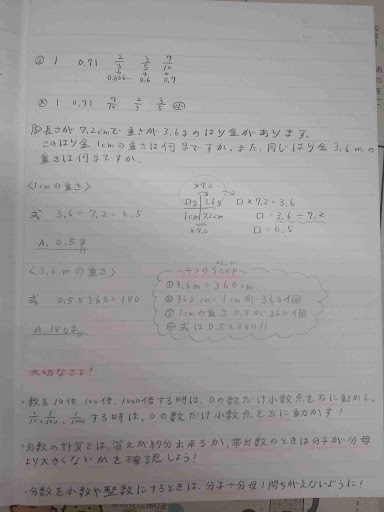 ② 1 0.71 2/3 3/5 7/10
0.666… 0.6 0.7
大 1 0.71 7/10 2/3 3/5 小
長さが7.2cmで重さが3.6gのはり金があります。
このはり金1cmの重さは何gですか。また、同じはり金3.6mの
重さは何gですか。
<1cmの重さ>
式 3.6÷7.2=0.5
A. 0.5g
×7.2
□g 3.6g
1cm 7.2cm
×7.2
□×7.2=3.6
□=3.6÷7.2
□=0.5
<3.6mの重さ>
式 0.5×360=180
A. 180g
4つのStep
①3.6m=360cm
②360cm=1cmが360個
③1cmの重さ0.5が360個
④式は0.5×360!!
大切なこと!
・数を10倍、100倍、1000倍する時は、0の数だけ小数点を右に動かし、
1/10、1/100、1/1000する時は、0の数だけ小数点を左に動かす!
・分数の計算では、答えが約分出来るか、帯分数のときは分子が分母
より大きくないかを確認しよう!
・分数を小数や整数にするときは、分子÷分母!間ちがえないように!